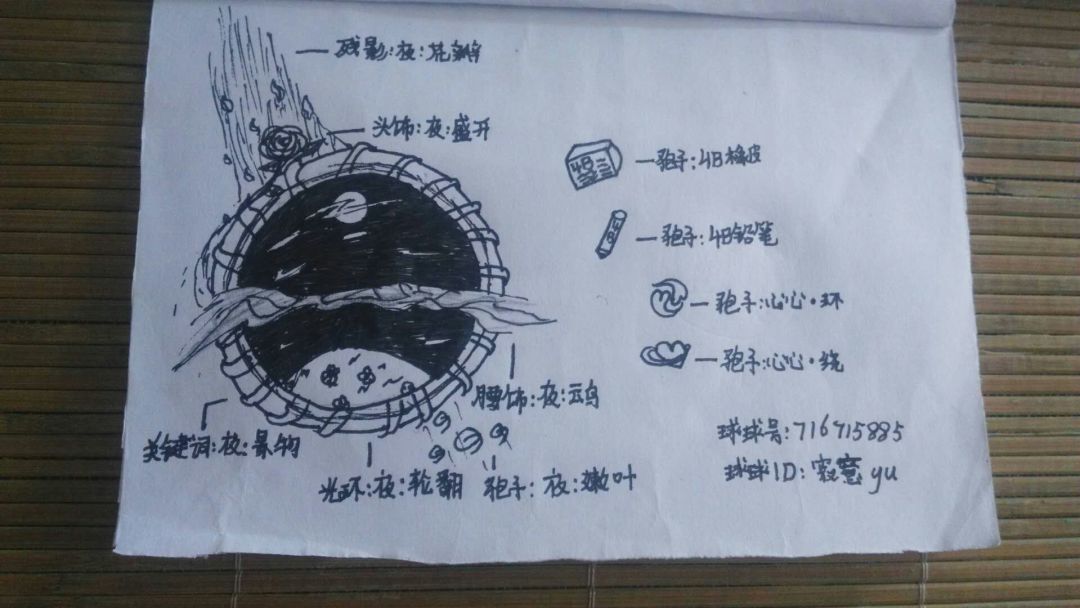 残影:夜:花瓣
头饰:夜:盛开
4B
孢子:4B橡皮
孢子:4B铅笔
孢子:心心·环
孢子:心心·绕
腰饰:夜:云鸟
关键词:夜:景钩
光环:夜:轮翻
孢子:夜:嫩叶
球球号:716715885
球球ID:寂寞yu